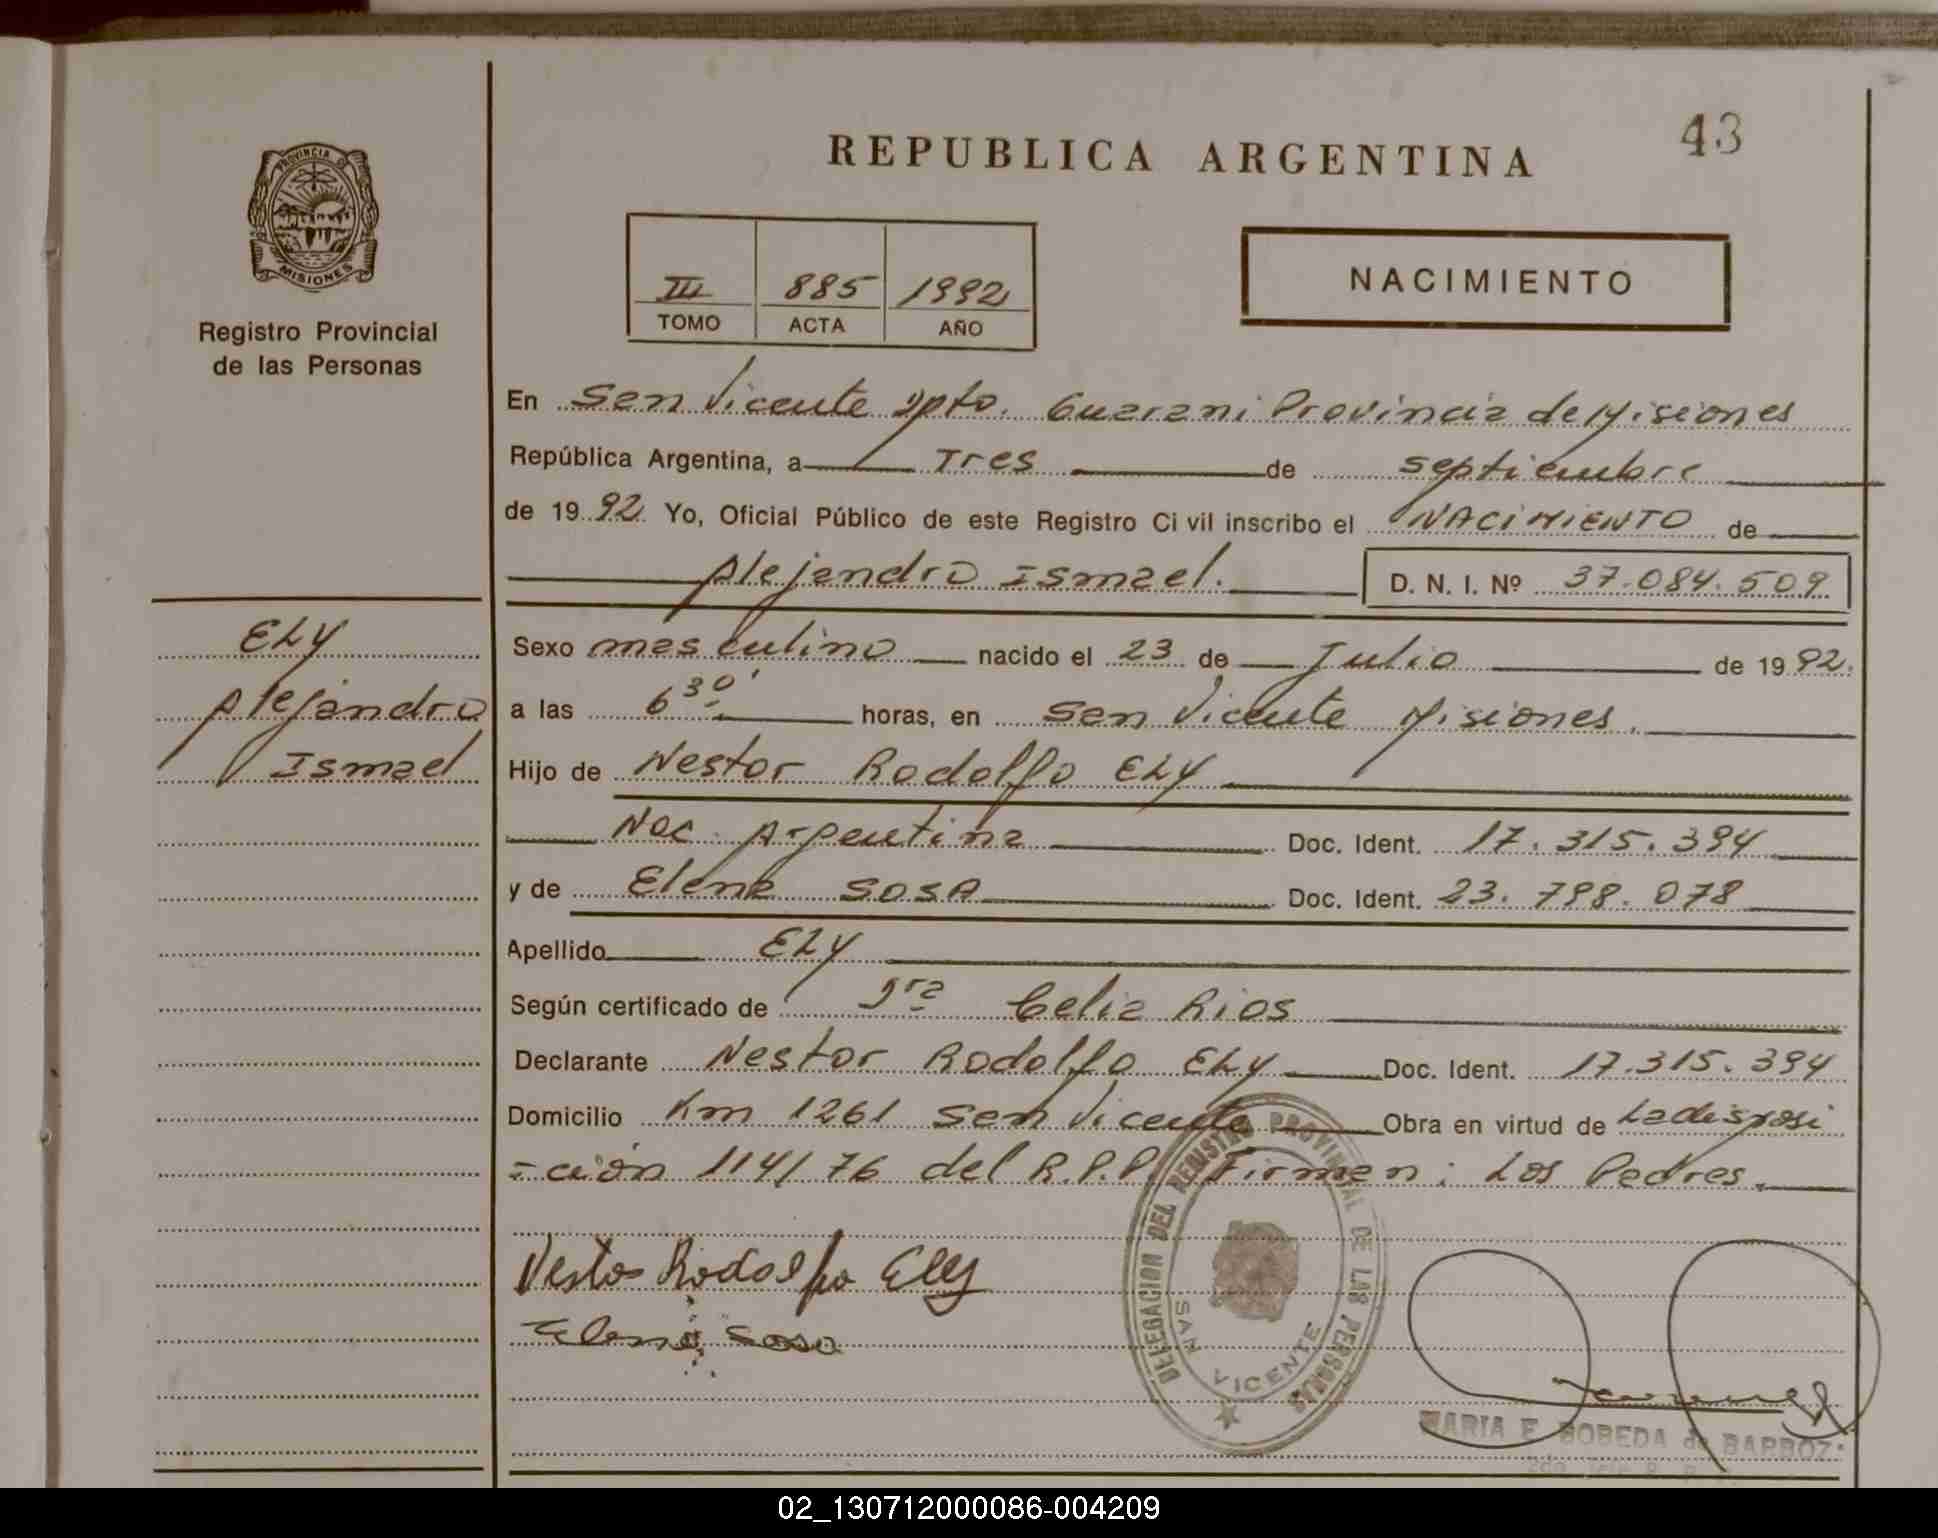 43
REPUBLICA ARGENTINA
PROVINCIA D
MISIONES
Registro Provincial
de las Personas
III 885 1992
TOMO ACTA AÑO
NACIMIENTO
En San Vicente Dpto. Guarani Provincia de Misiones
República Argentina, a Tres de septiembre
de 1992 Yo, Oficial Público de este Registro Civil inscribo el NACIMIENTO de
Alejandro Ismael. D. N. I. Nº 37.084.509
ELY
Alejandro
Ismael
Sexo masculino nacido el 23 de Julio de 1992.
a las 6 30' horas, en San Vicente Misiones.
Hijo de Nestor Rodolfo ELY
Nac. Argentina Doc. Ident. 17.315.394
y de Elena SOSA Doc. Ident. 23.798.078
Apellido ELY
Según certificado de Celia Rios
Declarante Nestor Rodolfo ELY Doc. Ident. 17.315.394
Domicilio Km 1261 San Vicente Obra en virtud de La disposi
=ción 114/76 del R.P.P. Firman: Los Padres.
Nestor Rodolfo Ely
Elena Sosa
DELEGACION DEL REGISTRO PROVINCIAL DE LAS PERSONAS
SAN VICENTE
MARIA E BOBEDA de BARBOZ
02_130712000086-004209